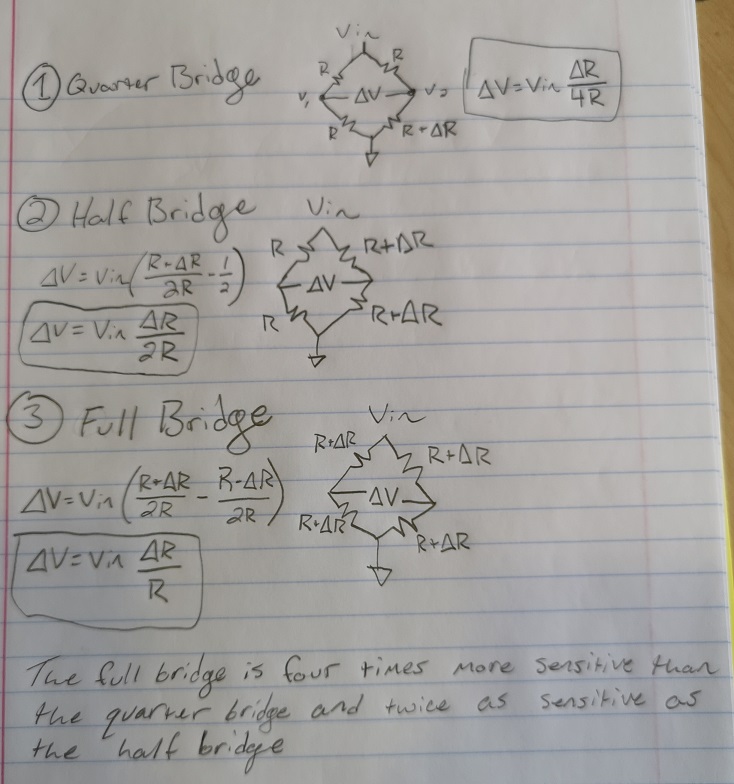 Vin
① Quarter Bridge R R V₁ ΔV V₂ ΔV = Vin ΔR/4R
R R+ΔR
② Half Bridge Vin
R R+ΔR
ΔV = Vin(R+ΔR/2R - 1/2) ΔV
R R+ΔR
ΔV = Vin ΔR/2R
③ Full Bridge Vin
R+ΔR R+ΔR
ΔV = Vin(R+ΔR/2R - R-ΔR/2R) ΔV
R+ΔR R+ΔR
ΔV = Vin ΔR/R
The full bridge is four times more sensitive than
the quarter bridge and twice as sensitive as
the half bridge